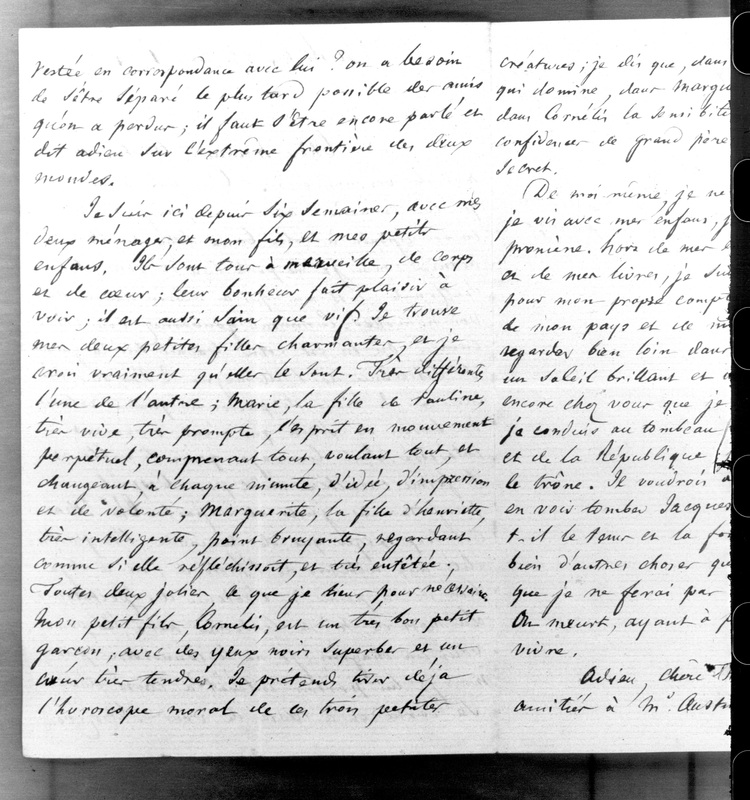 restée en correspondance avec lui ? on a besoin
de s'être séparé le plus tard possible des amis
qu'on a perdus ; il faut s'être encore parlé et
dit adieu sur l'extrême frontière des deux
mondes.
Je suis ici depuis six semaines, avec mes
deux ménages, et mon fils, et mes petits
enfans. Ils sont tous à merveille, de corps
et de cœur ; leur bonheur fait plaisir à
voir ; il est aussi sain que vif. Je trouve
mes deux petites filles charmantes, et je
crois vraiment qu'elles le sont. Très différentes
l'une de l'autre ; Marie, la fille de Pauline,
très vive, très prompte, l'esprit en mouvement
perpétuel, comprenant tout, voulant tout, et
changeant, à chaque minute, d'idée, d'impression
et de volonté ; Marguerite, la fille d'henriette,
très intelligente, point bruyante, regardant
comme si elle réfléchissoit, et très entêtée.
Toutes deux jolies, ce que je tiens pour nécessaire.
Mon petit fils, Cornélis, est un très bon petit
garçon, avec des yeux noirs superbes et un
cœur très tendre. Je prétends tirer déja
l'horoscope moral de ces trois petites
créatures ; je dis que, dans
qui domine, dans
dans Cornélis la sensibilité
confidences de grand père
secret.
De moi même, je ne
je vis avec mes enfans,
promène. hors de mes
et de mes livres, je
pour mon propre
de mon pays et de
regarder bien loin dans
un soleil brillant et
encore chez vous que je
je conduis au tombeau
et de la République
le trône. Je voudrois
en voir tomber Jacques
t-il le tems et la
bien d'autres choses
que je ne ferai pas
On meurt, ayant à
vivre.
Adieu, chère
amitiés à Mr.